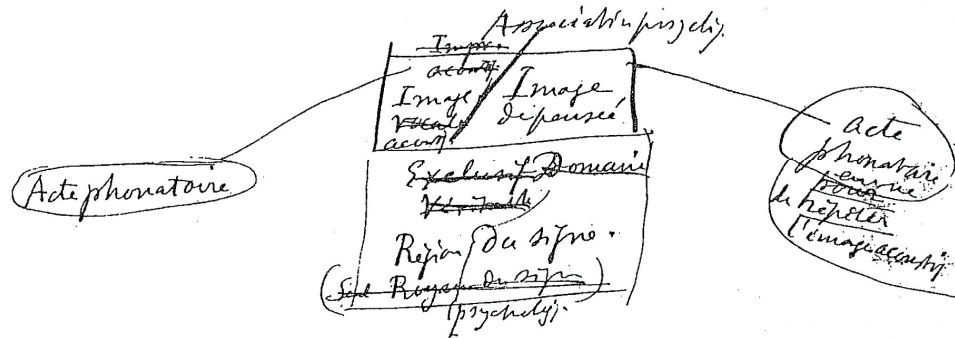 Association psych.
Impr.
acoust.
Image
vocale
acoust.
Image
de pensée
Acte phonatoire
Exclusif Domaine
Véritable
Région du signe.
(Seul Royaume du signe)
(psycholg.
acte
phonatoire
en vue
pour
de répéter
l'image acoustiq